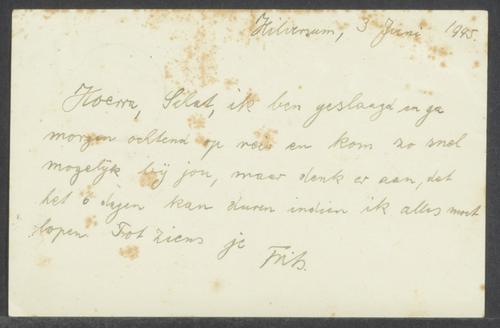 Hilversum, 3 Juni 1945.
Hoera, Schat, ik ben geslaagd en ga
morgen ochtend op reis en kom zo snel
mogelijk bij jou, maar denk er aan, dat
het 6 dagen kan duren indien ik alles moet
lopen. Tot ziens je
Frits.